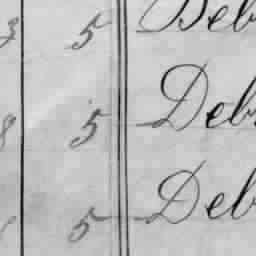 3 5 Deb
8 5 Deb
5 Deb